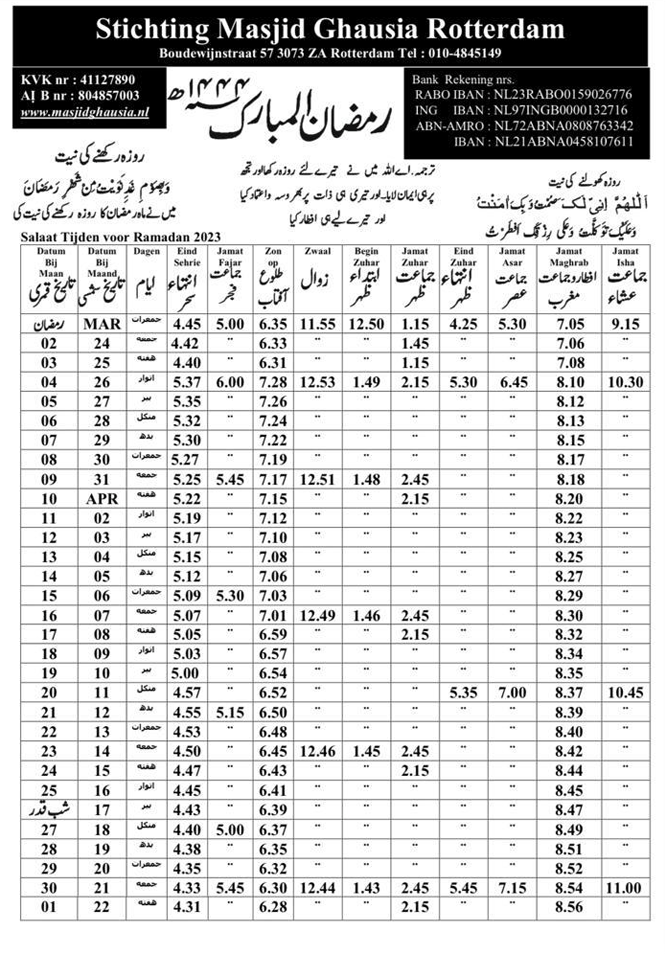 Stichting Masjid Ghausia Rotterdam
Boudewijnstraat 57 3073 ZA Rotterdam Tel : 010-4845149
KVK nr : 41127890
AI B nr : 804857003
www.masjidghausia.nl
رمضان المبارک ۱۴۴۴ھ
Bank Rekening nrs.
RABO IBAN : NL23RABO0159026776
ING IBAN : NL97INGB0000132716
ABN-AMRO : NL72ABNA0808763342
IBAN : NL21ABNA0458107611
روزہ رکھنے کی نیت
وَبِصَوْمِ غَدٍ نَّوَيْتُ مِنْ شَهْرِ رَمَضَانَ
میں نے ماہ رمضان کا روزہ رکھنے کی نیت کی
ترجمہ۔ اے اللہ میں نے تیرے لئے روزہ رکھا اور تجھ
پر ہی ایمان لایا۔ اور تیری ہی ذات پر بھروسہ واعتماد کیا
اور تیرے لیے ہی افطار کیا
روزہ کھولنے کی نیت
اَللّٰهُمَّ اِنِّی لَکَ صُمْتُ وَبِکَ اٰمَنْتُ
وَعَلَيْکَ تَوَکَّلْتُ وَعَلٰی رِزْقِکَ اَفْطَرْتُ
Salaat Tijden voor Ramadan 2023
Datum Bij Maan تاریخ قمری | Datum Bij Maand تاریخ شمسی | Dagen ایام | Eind Sehrie انتہاء سحر | Jamat Fajar جماعت فجر | Zon op طلوع آفتاب | Zwaal زوال | Begin Zuhar ابتداء ظہر | Jamat Zuhar جماعت ظہر | Eind Zuhar انتہاء ظہر | Jamat Asar جماعت عصر | Jamat Maghrab افطار و جماعت مغرب | Jamat Isha جماعت عشاء
رمضان MAR جمعرات 4.45 5.00 6.35 11.55 12.50 1.15 4.25 5.30 7.05 9.15
02 24 جمعہ 4.42 " 6.33 " " 1.45 " " 7.06 "
03 25 ہفتہ 4.40 " 6.31 " " 1.15 " " 7.08 "
04 26 اتوار 5.37 6.00 7.28 12.53 1.49 2.15 5.30 6.45 8.10 10.30
05 27 پیر 5.35 " 7.26 " " " " " 8.12 "
06 28 منگل 5.32 " 7.24 " " " " " 8.13 "
07 29 بدھ 5.30 " 7.22 " " " " " 8.15 "
08 30 جمعرات 5.27 " 7.19 " " " " " 8.17 "
09 31 جمعہ 5.25 5.45 7.17 12.51 1.48 2.45 " " 8.18 "
10 APR ہفتہ 5.22 " 7.15 " " 2.15 " " 8.20 "
11 02 اتوار 5.19 " 7.12 " " " " " 8.22 "
12 03 پیر 5.17 " 7.10 " " " " " 8.23 "
13 04 منگل 5.15 " 7.08 " " " " " 8.25 "
14 05 بدھ 5.12 " 7.06 " " " " " 8.27 "
15 06 جمعرات 5.09 5.30 7.03 " " " " " 8.29 "
16 07 جمعہ 5.07 " 7.01 12.49 1.46 2.45 " " 8.30 "
17 08 ہفتہ 5.05 " 6.59 " " 2.15 " " 8.32 "
18 09 اتوار 5.03 " 6.57 " " " " " 8.34 "
19 10 پیر 5.00 " 6.54 " " " " " 8.35 "
20 11 منگل 4.57 " 6.52 " " " 5.35 7.00 8.37 10.45
21 12 بدھ 4.55 5.15 6.50 " " " " " 8.39 "
22 13 جمعرات 4.53 " 6.48 " " " " " 8.40 "
23 14 جمعہ 4.50 " 6.45 12.46 1.45 2.45 " " 8.42 "
24 15 ہفتہ 4.47 " 6.43 " " 2.15 " " 8.44 "
25 16 اتوار 4.45 " 6.41 " " " " " 8.45 "
شب قدر 17 پیر 4.43 " 6.39 " " " " " 8.47 "
27 18 منگل 4.40 5.00 6.37 " " " " " 8.49 "
28 19 بدھ 4.38 " 6.35 " " " " " 8.51 "
29 20 جمعرات 4.35 " 6.32 " " " " " 8.52 "
30 21 جمعہ 4.33 5.45 6.30 12.44 1.43 2.45 5.45 7.15 8.54 11.00
01 22 ہفتہ 4.31 " 6.28 " " 2.15 " " 8.56 "